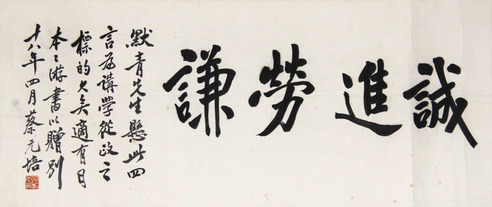 誠進勞謙
默青先生懸此四
言為講學從政之
標的久矣適有日
本之游書以贈別
十八年四月蔡元培